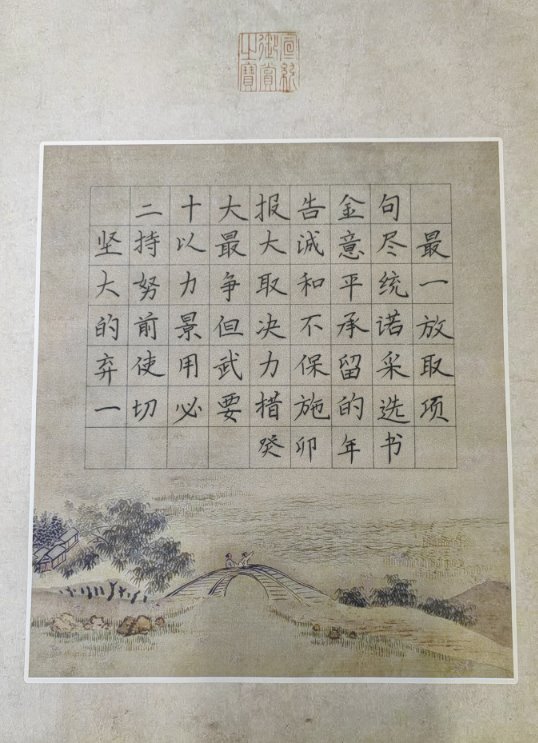 御賞
之寶
二十大报告金句
坚持以最大诚意尽最
大努力争取和平统一
的前景但决不承诺放
弃使用武力保留采取
一切必要措施的选项
癸卯年书